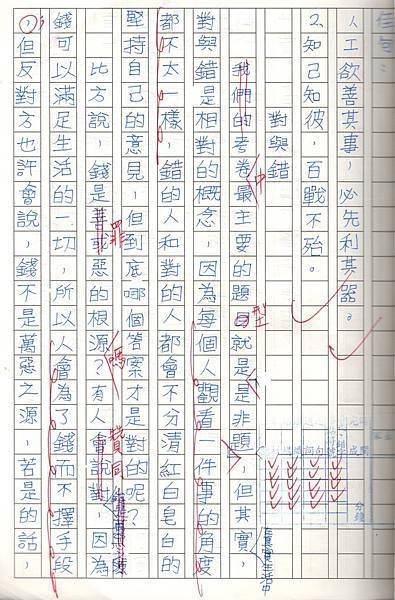 佳句：
1.工欲善其事，必先利其器。
2.知己知彼，百戰不殆。
對與錯
我們的考卷最主要的題目就是是非題，但其實，
中
型
在真實生活中
對與錯是相對的概念，因為每個人觀看一件事的角度
都不太一樣，錯的人和對的人都會不分清紅白皂白的
堅持自己的意見，但到底哪個答案才是對的呢？
比方說，錢是善或惡的根源？有人會說對，因為
罪
嗎
贊同
錢可以滿足生活的一切，所以人會為了錢而不擇手段
，但反對方也許會說，錢不是萬惡之源，若是的話，